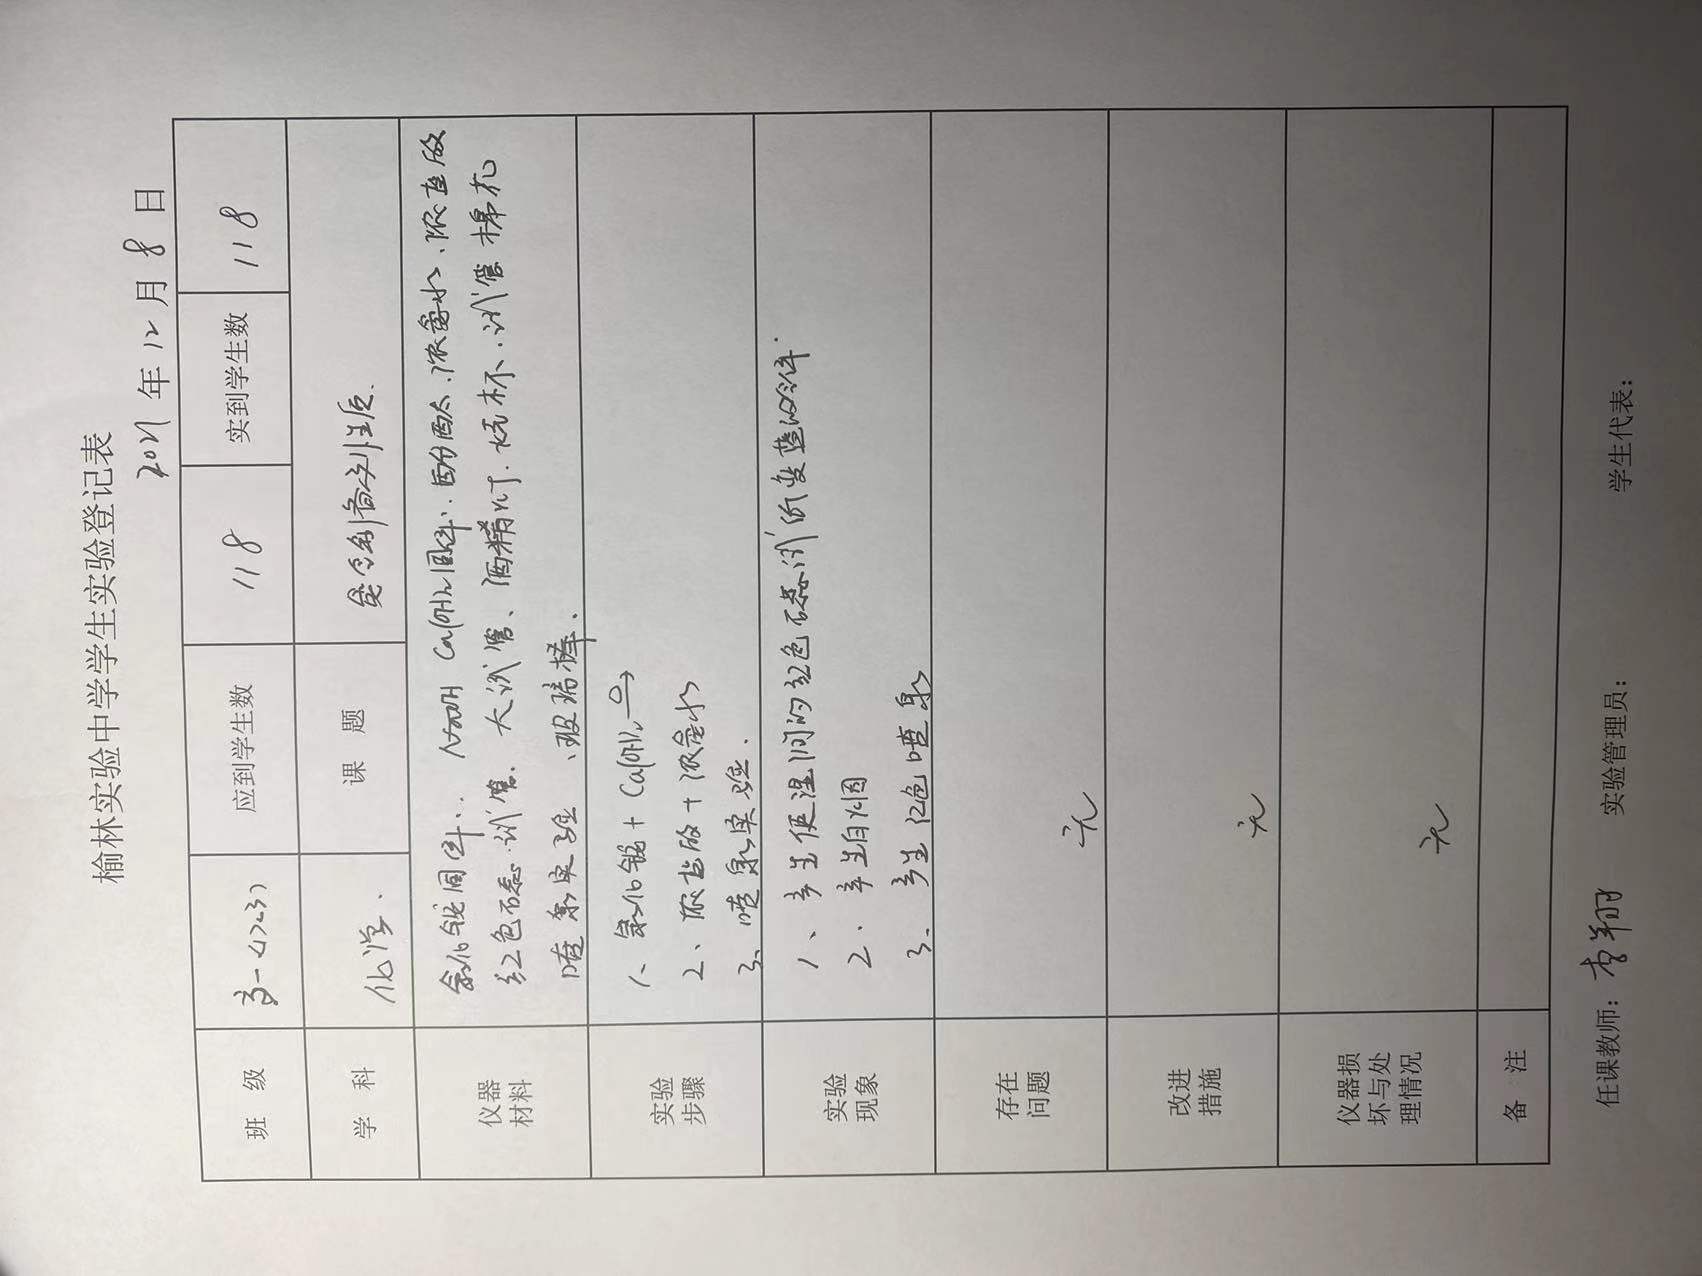 榆林实验中学学生实验登记表
2021年12月8日
班 级 高一<223> 应到学生数 118 实到学生数 118
学 科 化学. 课 题 氨的制备及性质.
仪器材料 氯化铵固体. Ca(OH)₂固体、酚酞、浓氨水、浓盐酸
红色石蕊、试管、大试管、酒精灯、烧杯、试管、棉花
喷泉实验、玻璃棒.
实验步骤 1、氯化铵 + Ca(OH)₂ △→
2、浓盐酸 + 浓氨水
3、喷泉实验.
实验现象 1、产生使湿润的红色石蕊试纸变蓝的气体.
2、产生白烟
3、产生红色喷泉
存在问题 无
改进措施 无
仪器损坏与处理情况 无
备 注
任课教师：李翔 实验管理员： 学生代表：